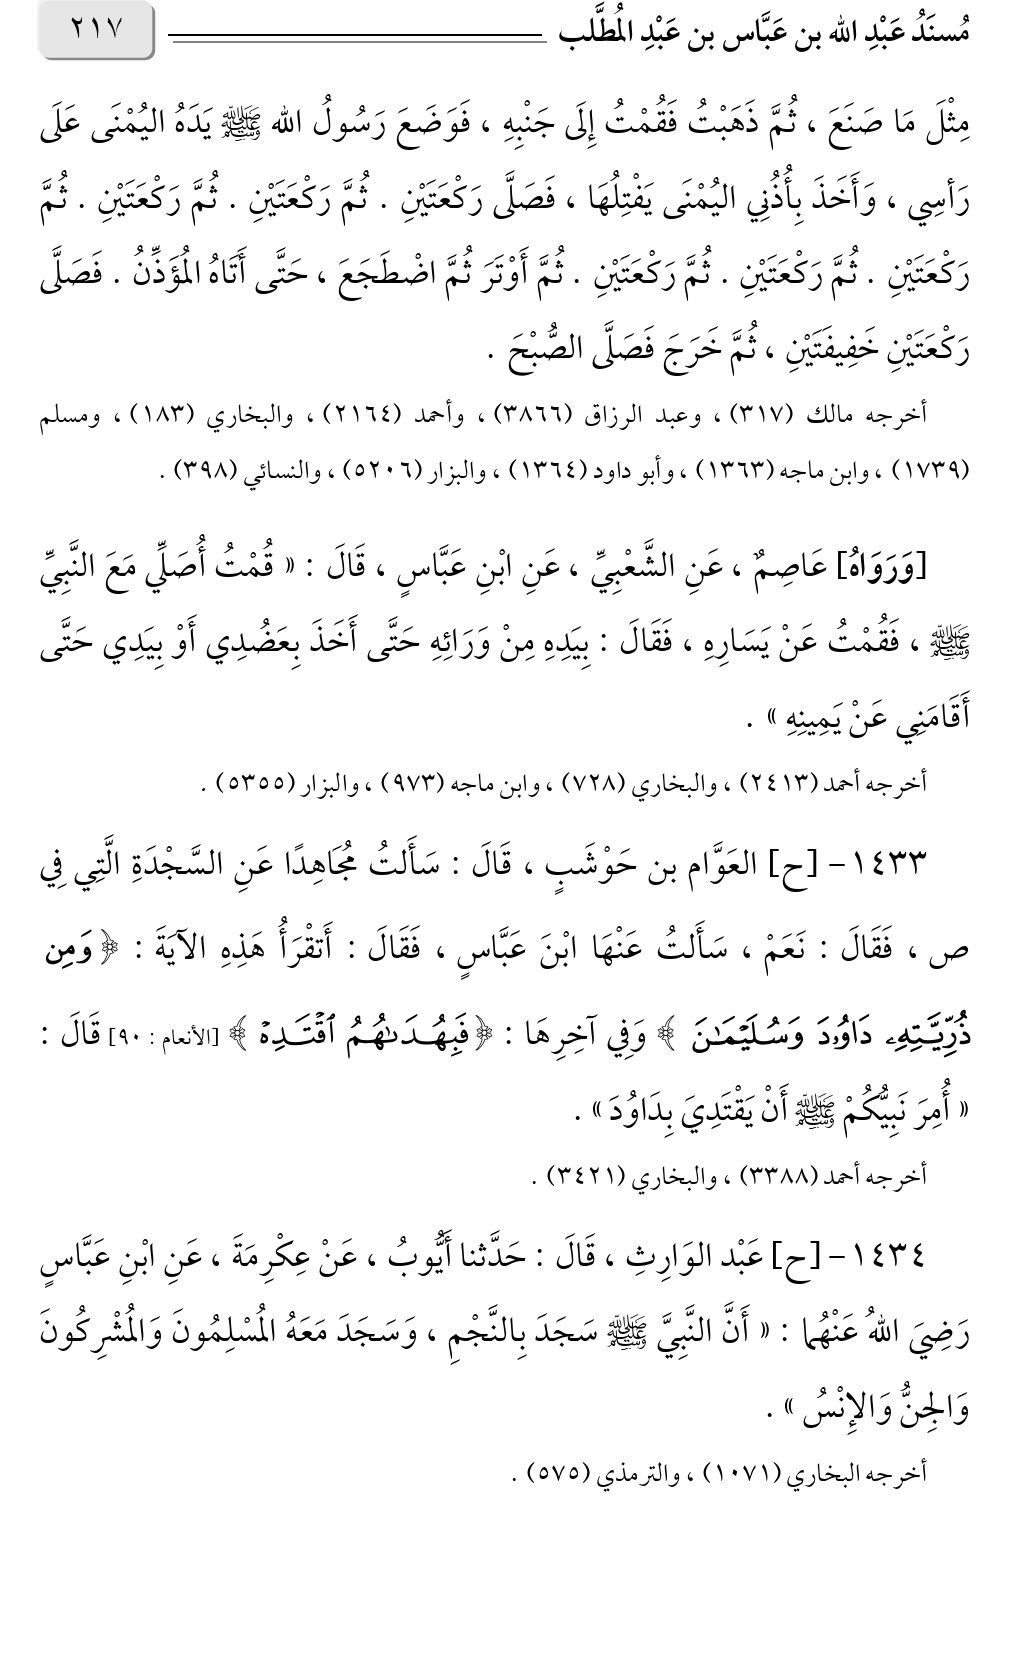 مُسنَدُ عَبْدِ الله بن عَبَّاس بن عَبْدِ المُطَّلب ٢١٧
مِثْلَ مَا صَنَعَ ، ثُمَّ ذَهَبْتُ فَقُمْتُ إِلَى جَنْبِهِ ، فَوَضَعَ رَسُولُ الله ﷺ يَدَهُ اليُمْنَى عَلَى
رَأسِي ، وَأَخَذَ بِأُذُنِي اليُمْنَى يَفْتِلُهَا ، فَصَلَّى رَكْعَتَيْنِ . ثُمَّ رَكْعَتَيْنِ . ثُمَّ رَكْعَتَيْنِ . ثُمَّ
رَكْعَتَيْنِ . ثُمَّ رَكْعَتَيْنِ . ثُمَّ رَكْعَتَيْنِ . ثُمَّ أَوْتَرَ ثُمَّ اضْطَجَعَ ، حَتَّى أَتَاهُ المُؤَذِّنُ . فَصَلَّى
رَكْعَتَيْنِ خَفِيفَتَيْنِ ، ثُمَّ خَرَجَ فَصَلَّى الصُّبْحَ .
أخرجه مالك (٣١٧) ، وعبد الرزاق (٣٨٦٦) ، وأحمد (٢١٦٤) ، والبخاري (١٨٣) ، ومسلم
(١٧٣٩) ، وابن ماجه (١٣٦٣) ، وأبو داود (١٣٦٤) ، والبزار (٥٢٠٦) ، والنسائي (٣٩٨) .
[وَرَوَاهُ] عَاصِمٌ ، عَنِ الشَّعْبِيِّ ، عَنِ ابْنِ عَبَّاسٍ ، قَالَ : « قُمْتُ أُصَلِّي مَعَ النَّبِيِّ
ﷺ ، فَقُمْتُ عَنْ يَسَارِهِ ، فَقَالَ : بِيَدِهِ مِنْ وَرَائِهِ حَتَّى أَخَذَ بِعَضُدِي أَوْ بِيَدِي حَتَّى
أَقَامَنِي عَنْ يَمِينِهِ » .
أخرجه أحمد (٢٤١٣) ، والبخاري (٧٢٨) ، وابن ماجه (٩٧٣) ، والبزار (٥٣٥٥) .
١٤٣٣ - [ح] العَوَّام بن حَوْشَبٍ ، قَالَ : سَأَلتُ مُجَاهِدًا عَنِ السَّجْدَةِ الَّتِي فِي
ص ، فَقَالَ : نَعَمْ ، سَأَلتُ عَنْهَا ابْنَ عَبَّاسٍ ، فَقَالَ : أَتقْرَأُ هَذِهِ الآيَةَ : ﴿ وَمِن
ذُرِّيَّتِهِۦ دَاوُۥدَ وَسُلَيْمَٰنَ ﴾ وَفِي آخِرِهَا : ﴿ فَبِهُدَىٰهُمُ ٱقْتَدِهْ ﴾ [الأنعام : ٩٠] قَالَ :
« أُمِرَ نَبِيُّكُمْ ﷺ أَنْ يَقْتَدِيَ بِدَاوُدَ » .
أخرجه أحمد (٣٣٨٨) ، والبخاري (٣٤٢١) .
١٤٣٤ - [ح] عَبْد الوَارِثِ ، قَالَ : حَدَّثنا أَيُّوبُ ، عَنْ عِكْرِمَةَ ، عَنِ ابْنِ عَبَّاسٍ
رَضِيَ اللهُ عَنْهُما : « أَنَّ النَّبِيَّ ﷺ سَجَدَ بِالنَّجْمِ ، وَسَجَدَ مَعَهُ المُسْلِمُونَ وَالمُشْرِكُونَ
وَالجِنُّ وَالإِنْسُ » .
أخرجه البخاري (١٠٧١) ، والترمذي (٥٧٥) .